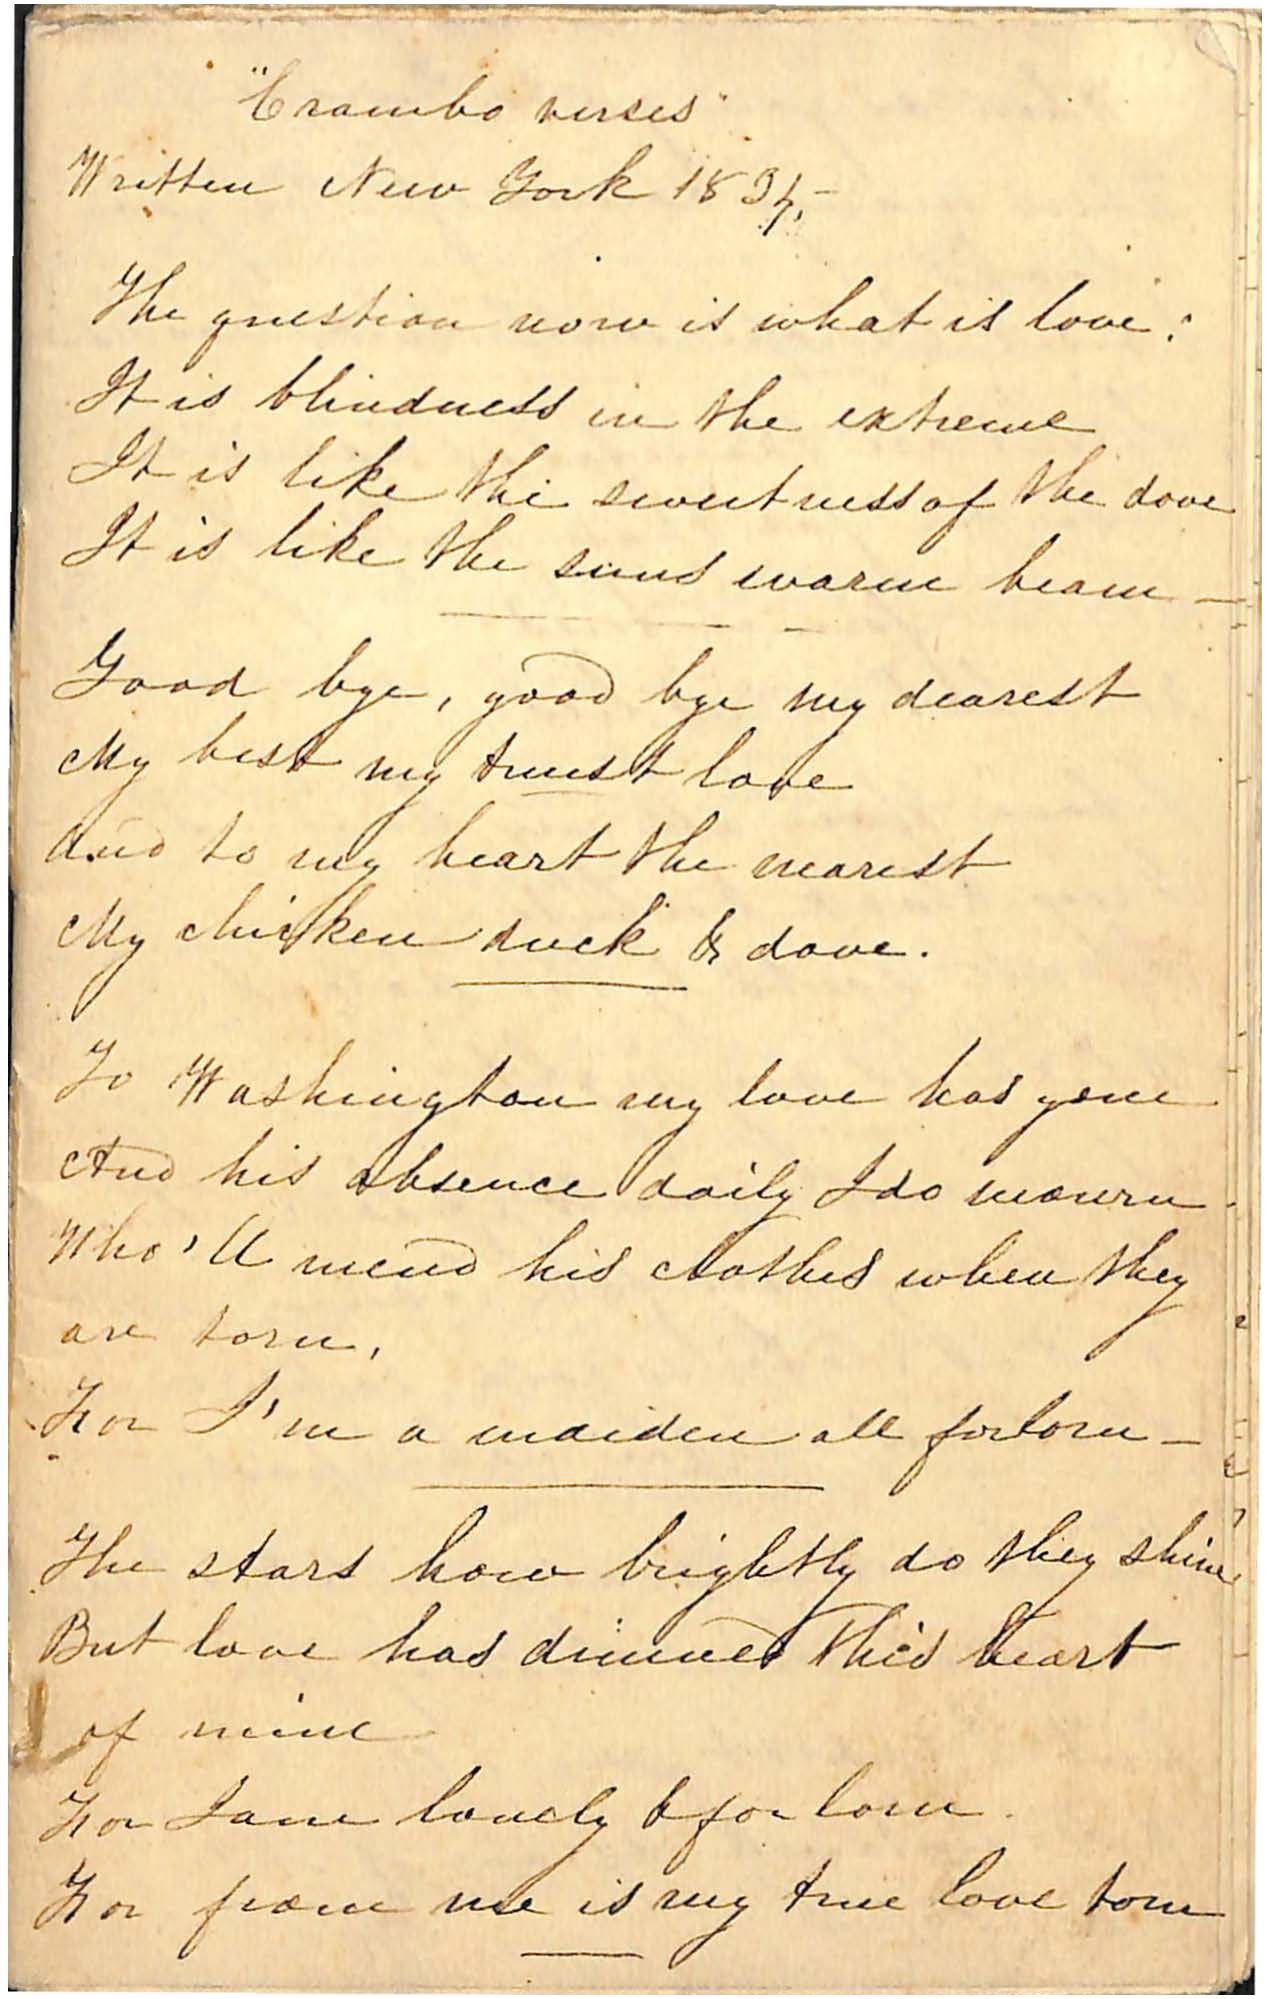 "Crambo verses"
Written New York 1834,-
The question now is what is love?
It is blindness in the extreme
It is like the sweetness of the dove
It is like the suns warm beam -
Good bye, good bye my dearest
My best my truest love
And to my heart the nearest
My chicken duck & dove.
To Washington my love has gone
And his absence daily I do mourn
Who'll mend his clothes when they
are torn,
For I'm a maiden all forlorn -
The stars how brightly do they shine
But love has dimmed this heart
of mine
For I am lonely & forlorn.
For from me is my true love torn